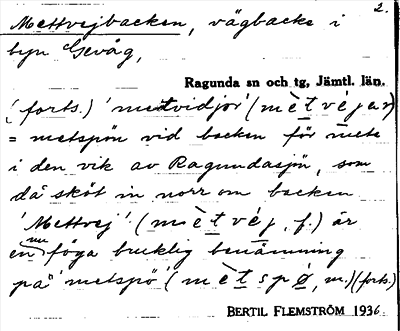 2.
Mettvejbacken, vägbacke i
byn Gevåg,
Ragunda sn och tg, Jämtl. län.
(forts.) 'metvidjor' (mètvéjar)
= metspön vid backen för mete
i den vik av Ragundasjön, som
då sköt in norr om backen
'Mettvej' (mètvéj, f.) är
en nu föga bruklig benämning
på 'metspö' (mètspø, m.) (forts.)
BERTIL FLEMSTRÖM 1936